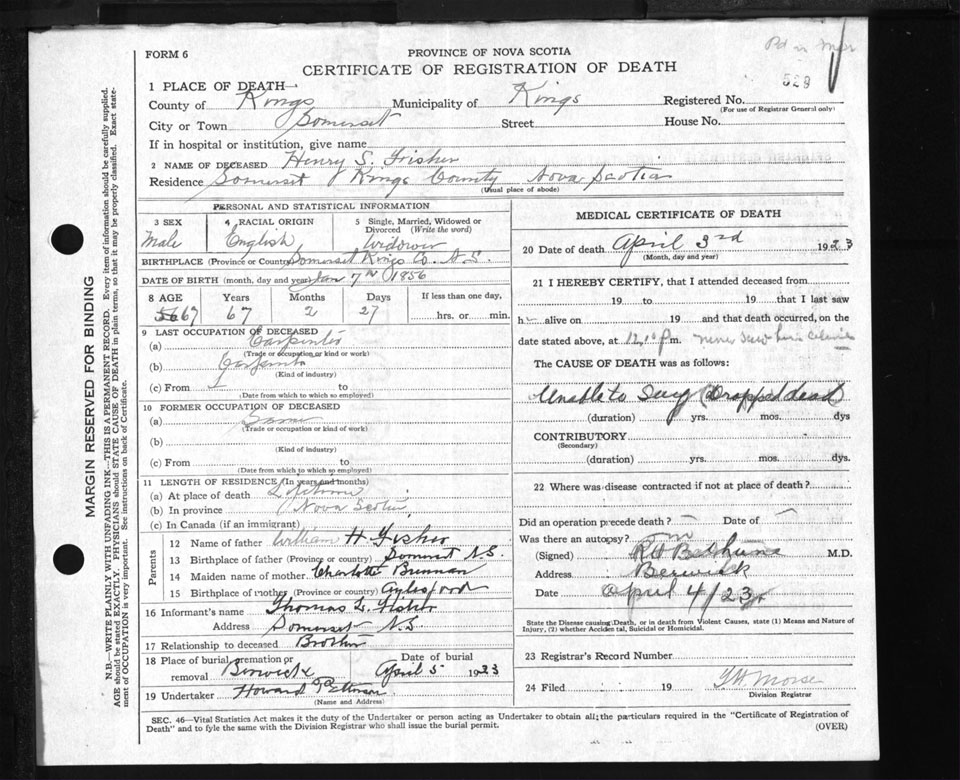 FORM 6
PROVINCE OF NOVA SCOTIA
CERTIFICATE OF REGISTRATION OF DEATH
529
1 PLACE OF DEATH—
County of Kings Municipality of Kings Registered No.
(For use of Registrar General only)
City or Town Somerset Street House No.
If in hospital or institution, give name
2 NAME OF DECEASED Henry S. Fisher
Residence Somerset Kings County Nova Scotia
(Usual place of abode)
PERSONAL AND STATISTICAL INFORMATION
3 SEX Male
4 RACIAL ORIGIN English
5 Single, Married, Widowed or Divorced (Write the word) Widower
BIRTHPLACE (Province or County) Somerset Kings Co. N.S.
DATE OF BIRTH (month, day and year) Jan 7th 1856
8 AGE Years Months Days If less than one day,
67 67 2 27 hrs. or min.
9 LAST OCCUPATION OF DECEASED
(a) Carpenter
(Trade or occupation or kind of work)
(b) Carpenter
(Kind of industry)
(c) From to
(Date from which to which so employed)
10 FORMER OCCUPATION OF DECEASED
(a) Same
(Trade or occupation or kind of work)
(b)
(Kind of industry)
(c) From to
(Date from which to which so employed)
11 LENGTH OF RESIDENCE (In years and months)
(a) At place of death Lifetime
(b) In province Nova Scotia
(c) In Canada (if an immigrant)
Parents
12 Name of father William H. Fisher
13 Birthplace of father (Province or country) Somerset N.S.
14 Maiden name of mother Charlotte
15 Birthplace of mother (Province or country) Aylesford
16 Informant's name Thomas L. Fisher
Address Somerset N.S.
17 Relationship to deceased Brother
18 Place of burial, cremation or removal Berwick Date of burial April 5 1923
19 Undertaker Howard
(Name and Address)
MEDICAL CERTIFICATE OF DEATH
20 Date of death April 3rd 1923
(Month, day and year)
21 I HEREBY CERTIFY, that I attended deceased from
19 to 19 that I last saw
h alive on 19 and that death occurred, on the
date stated above, at 12.10 p m. never saw him
The CAUSE OF DEATH was as follows:
Unable to Say (Dropped dead)
(duration) yrs. mos. dys
CONTRIBUTORY
(Secondary)
(duration) yrs. mos. dys
22 Where was disease contracted if not at place of death?
Did an operation precede death? Date of
Was there an autopsy?
(Signed) R H Bethune M.D.
Address Berwick
Date April 4/23
State the Disease causing Death, or in death from Violent Causes, state (1) Means and Nature of Injury, (2) whether Accidental, Suicidal or Homicidal.
23 Registrar's Record Number
24 Filed 19 Morse
Division Registrar
SEC. 46—Vital Statistics Act makes it the duty of the Undertaker or person acting as Undertaker to obtain all the particulars required in the "Certificate of Registration of
Death" and to fyle the same with the Division Registrar who shall issue the burial permit. (OVER)
MARGIN RESERVED FOR BINDING
N.B.—WRITE PLAINLY WITH UNFADING INK—THIS IS A PERMANENT RECORD. Every item of information should be carefully supplied.
AGE should be stated EXACTLY. PHYSICIANS should STATE CAUSE OF DEATH in plain terms, so that it may be properly classified. Exact statement
of OCCUPATION is very important. See instructions on back of Certificate.